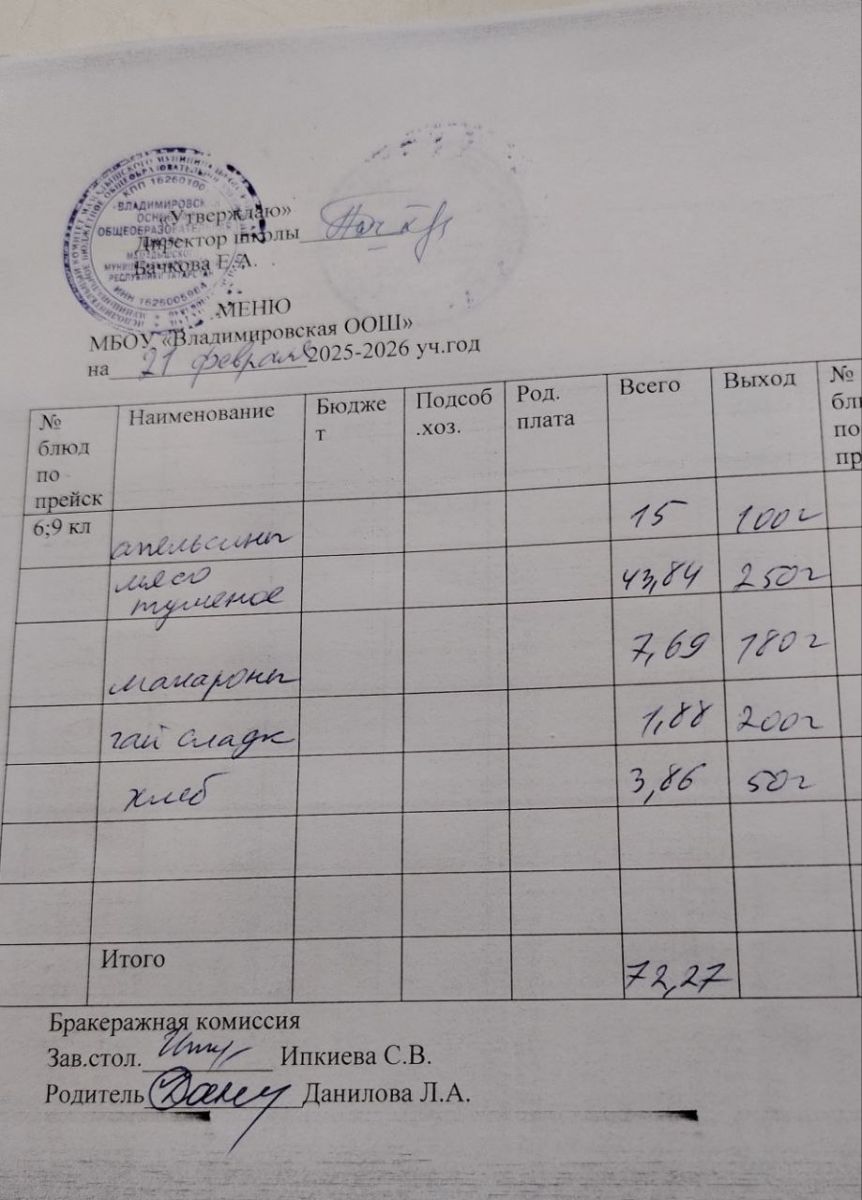 КПП 16260100
ВЛАДИМИРОВСК
ОСНО
ОБЩЕОБРАЗОВАТЕЛ
РЕСПУБЛИКИ ТАТАРСТАН
ИНН 1626005984
«Утверждаю»
Директор школы
Бачкова Е.А.
МЕНЮ
МБОУ «Владимировская ООШ»
на 21 февраля 2025-2026 уч.год
№ блюд по прейск Наименование Бюдже т Подсоб .хоз. Род. плата Всего Выход №
6;9 кл апельсины 15 100г
мясо
тушеное 43,84 250г
макароны 7,69 180г
чай сладк 1,88 200г
хлеб 3,86 50г
Итого 72,27
Бракеражная комиссия
Зав.стол. Ипкиева С.В.
Родитель Данилова Л.А.